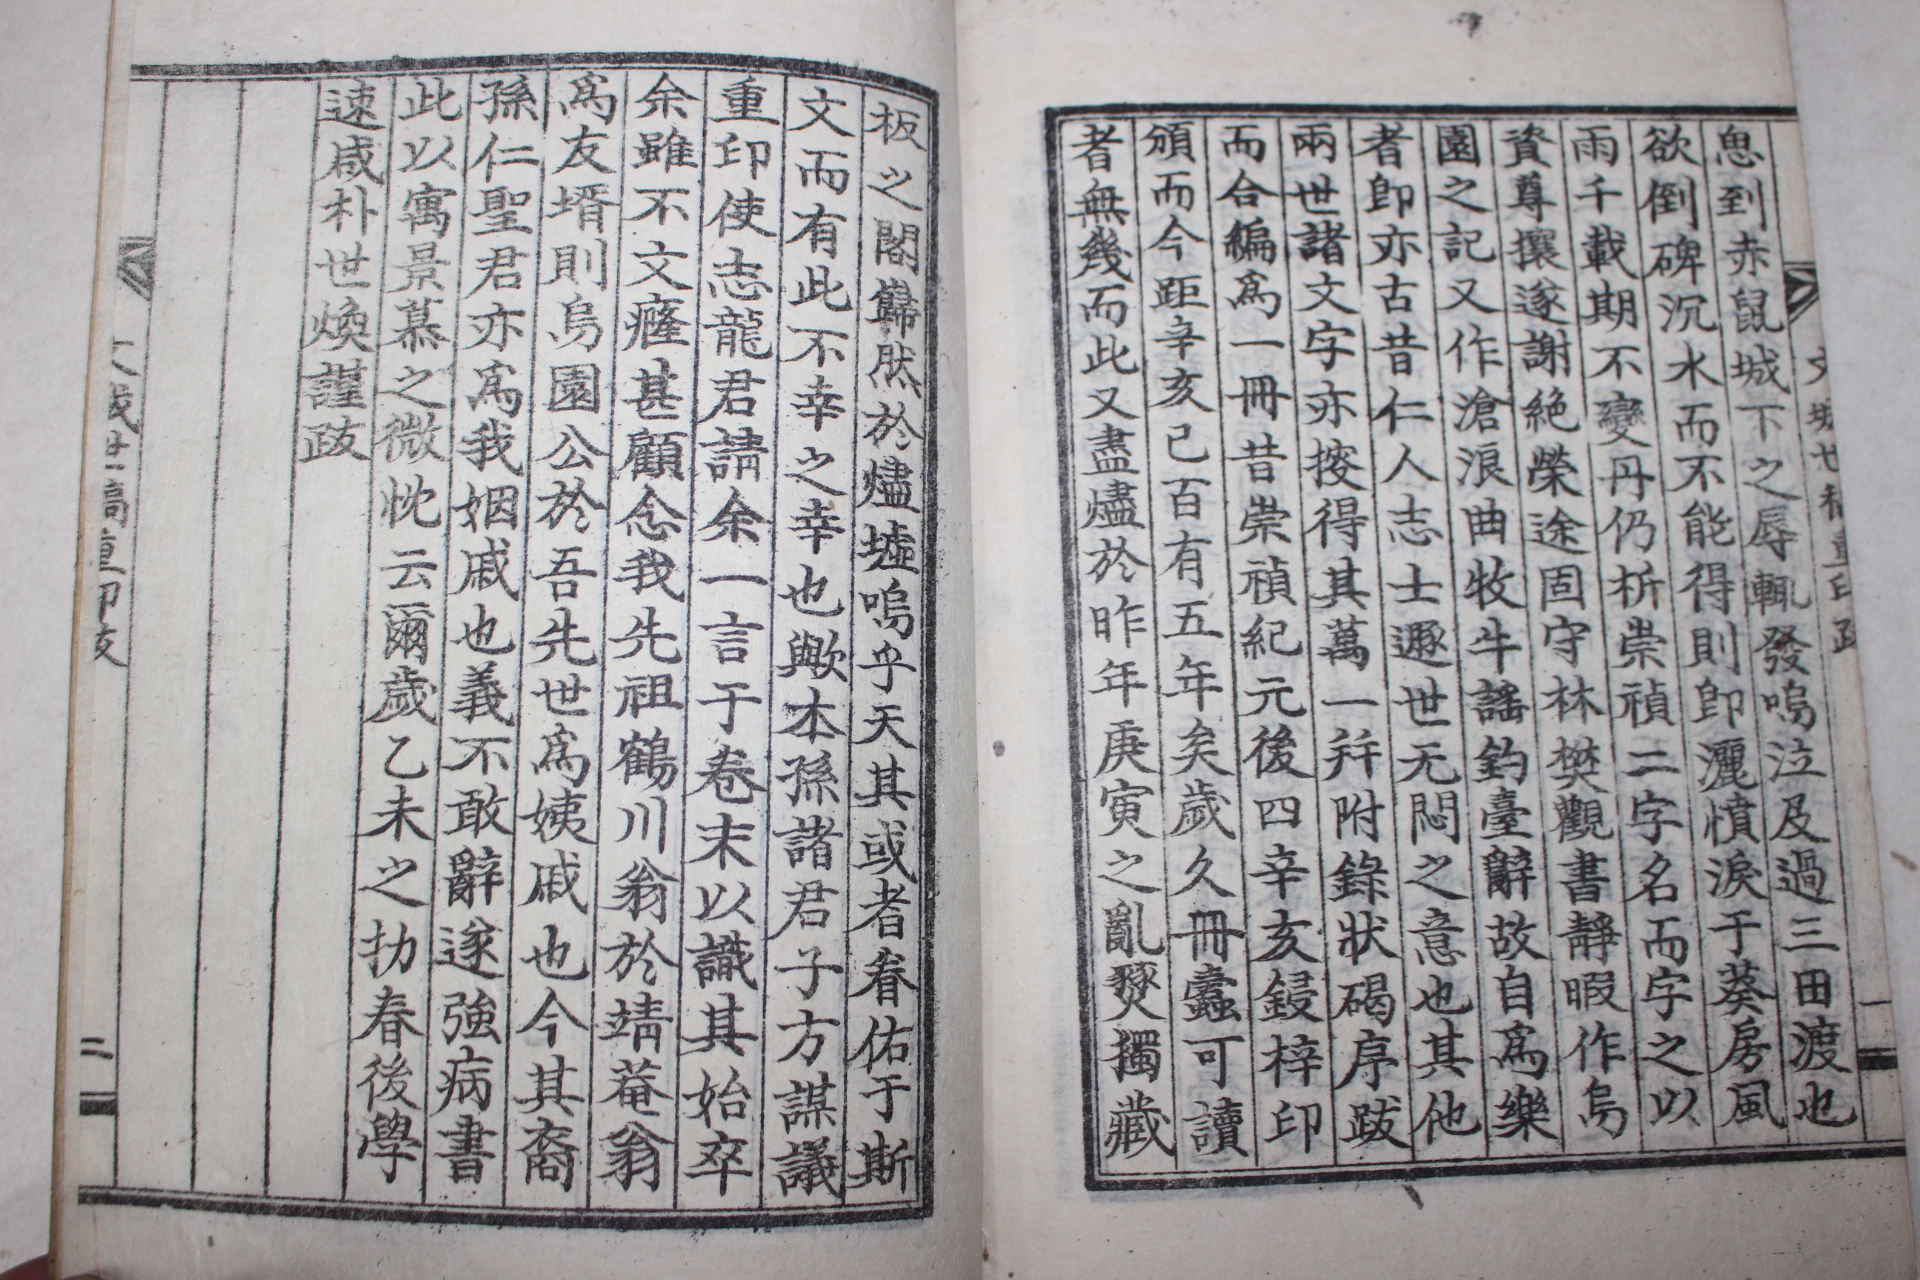 恖到赤鼠城下之辱輒發嗚泣及過三田渡也
欲倒碑沉水而不能得則卽灑憤淚于葵房風
雨千載期不變丹仍析崇禎二字名而字之以
資尊攘遂謝絶榮途固守林樊觀書靜暇作烏
園之記又作滄浪曲牧牛謠釣臺辭故自爲樂
者卽亦古昔仁人志士遯世无悶之意也其他
兩世諸文字亦按得其萬一幷附錄狀碣序跋
而合編爲一冊昔崇禎紀元後四辛亥鋟梓印
頒而今距辛亥已百有五年矣歲久冊蠹可讀
者無幾而此又盡燼於昨年庚寅之亂燹獨藏
板之閣巋然於燼墟嗚乎天其或者眷佑于斯
文而有此不幸之幸也歟本孫諸君子方謀議
重印使志龍君請余一言于卷末以識其始卒
余雖不文癃甚顧念我先祖鶴川翁於靖菴翁
爲友壻則烏園公於吾先世爲姨戚也今其裔
孫仁聖君亦爲我姻戚也義不敢辭遂強病書
此以寓景慕之微忱云爾歲乙未之扐春後學
速咸朴世煥謹跋
二